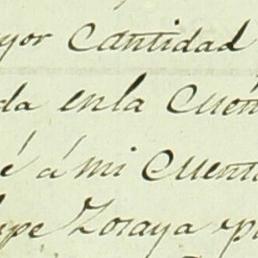 yor Cantidad
da en la Cuen
é á mi Cuenta
lipe Zoraya p